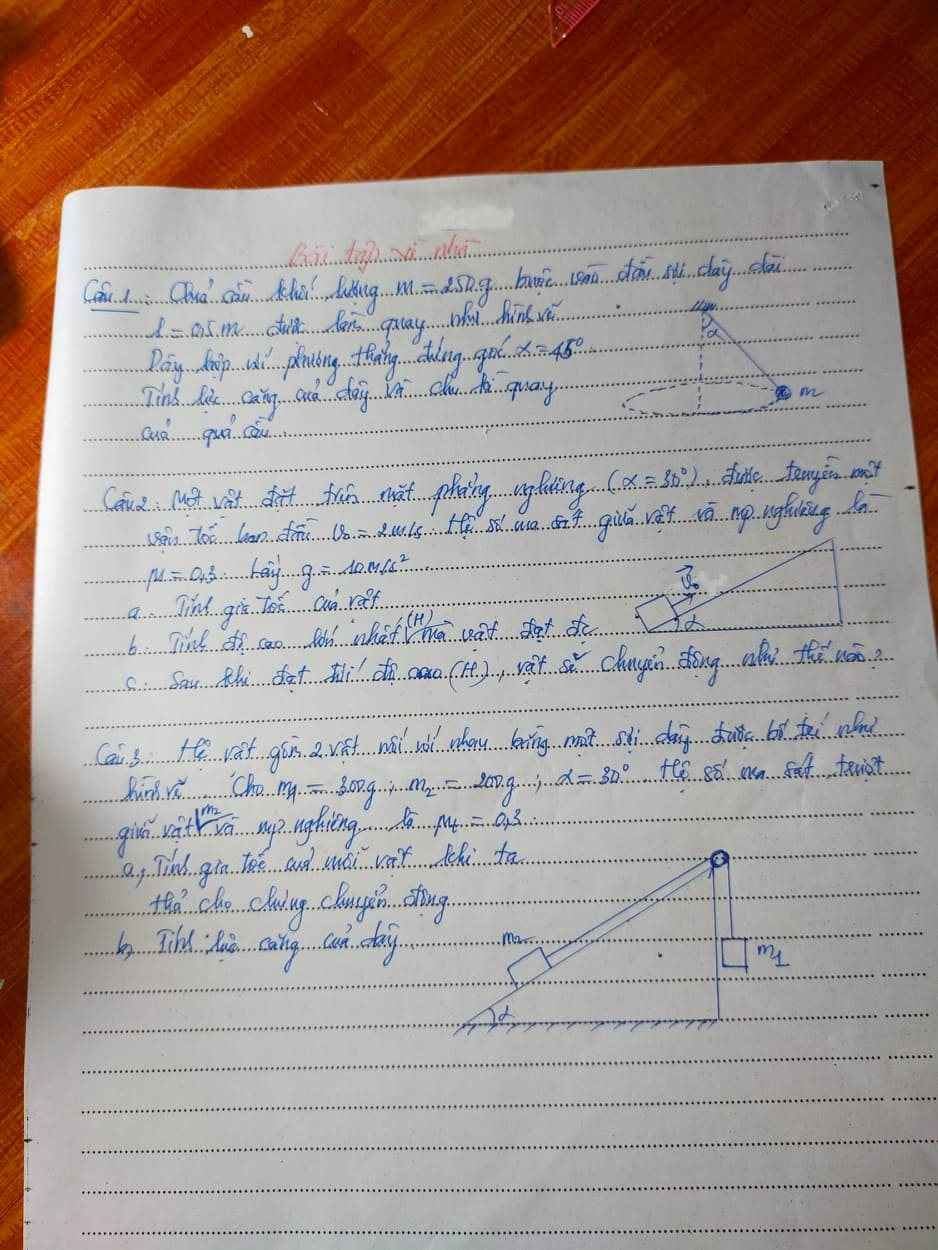 Bài tập về nhà
Câu 1: Quả cầu khối lượng m = 250g buộc vào đầu sợi dây dài
l = 0,5 m được làm quay như hình vẽ
Dây hợp với phương thẳng đứng góc α = 45°.
Tính lực căng của dây và chu kì quay
của quả cầu.
α
m
Câu 2: Một vật đặt trên mặt phẳng nghiêng (α = 30°), được truyền một
vận tốc ban đầu v₀ = 2m/s. Hệ số ma sát giữa vật và mp nghiêng là
μ = 0,3. Lấy g = 10 m/s²
a. Tính gia tốc của vật
b. Tính độ cao lớn nhất (H) mà vật đạt đc
c. Sau khi đạt tới độ cao (H), vật sẽ chuyển động như thế nào?
v₀
α
Câu 3: Hệ vật gồm 2 vật nối với nhau bằng một sợi dây được bố trí như
hình vẽ. Cho m1 = 300g; m2 = 200g; α = 30°. Hệ số ma sát trượt
giữa vật m2 và mp nghiêng là μt = 0,3.
a, Tính gia tốc của mỗi vật khi ta
thả cho chúng chuyển động
b, Tính lực căng của dây.
m2
m1
α